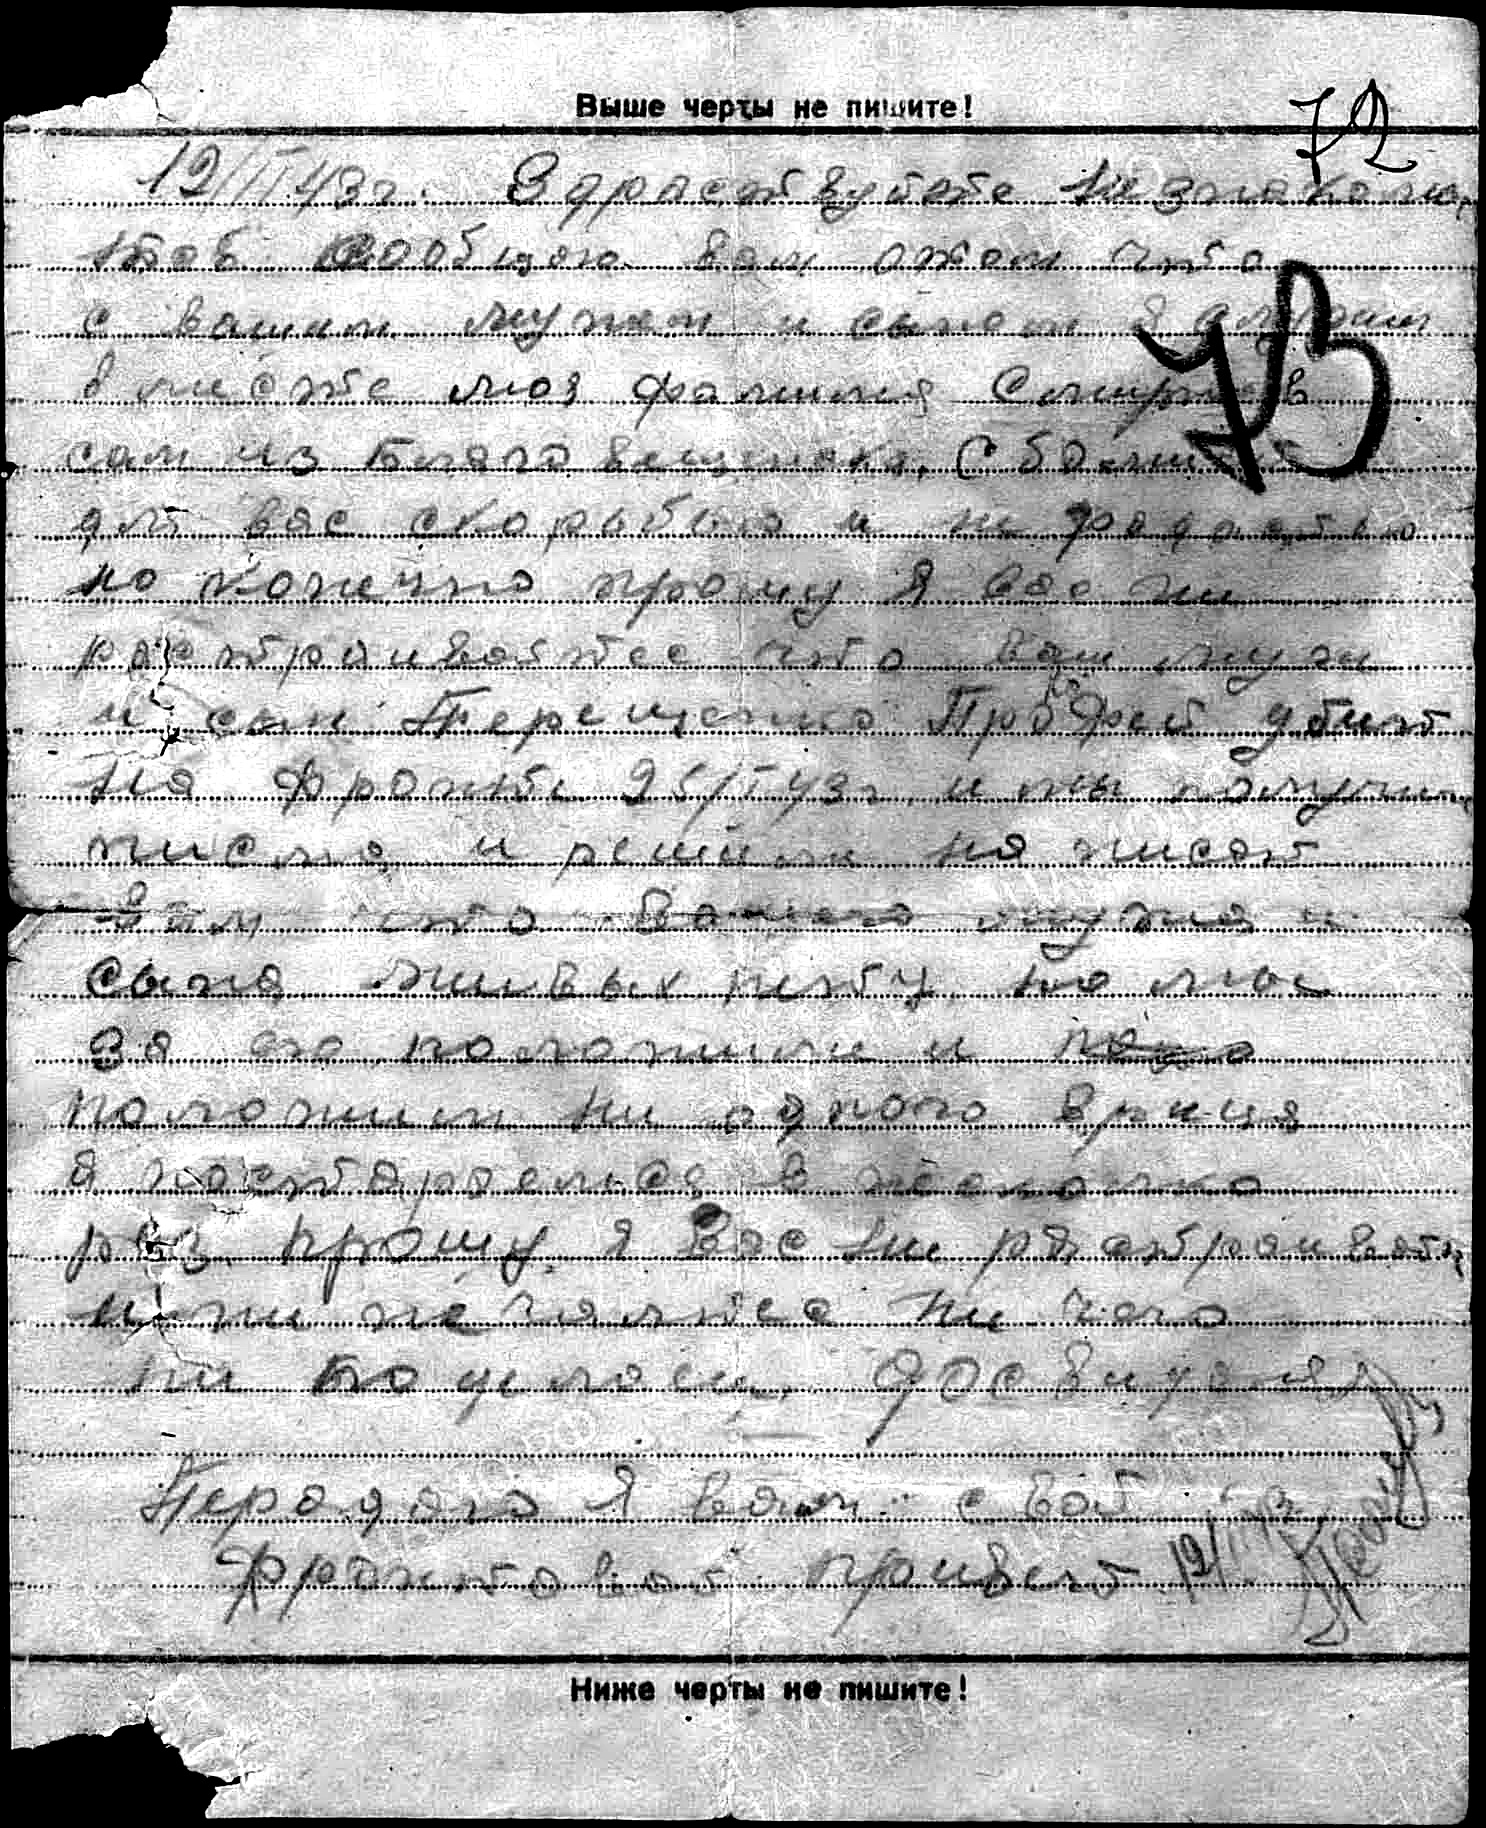 Выше черты не пишите!
72
12/II 43 г. Здраствуйте незнаком.
сообщаю вам о том что
73
с вашим мужем и сыном я служил
вместе моя фамиля Смирнов
сам из Благовещенска. С большой
для вас скорбью и не радостью
но конечно прошу я вас ни
растраивайтесе что ваш муж
и сын Терещенко Прокофей убит
на фронте 25/I 43 г. и мы получили
писмо и решили написат
Вам что вашего мужа и
сына живых нету, но мы
за его положили и
положим ни одного врица
я постараюся в несколько
раз. прошу я Вас ни растраиват
и ни печалтесе ни чего
ни поделаеш. Досвиданя
Передаю я вам свой
фронтовой привет. 12/II 43
Ниже черты не пишите!